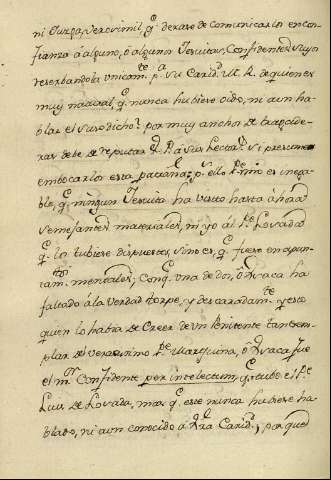 ni Justa, Verovimil, q.e dexase de comunicarlos en con-
fianza á alguno, ó algunos Jesuitas, Confidentes suyos
reserbandola unicam.te p.a su Carid.d M. R. de quien es
muy natural, q.e nunca hubiere oido, ni aun ha-
blar el susodicho: por muy anchos de tragade-
ras debe de reputar V. P. á sus Lector.s si presume
embocarles esta patraña; p.s ello P.e mio es inega-
ble, q.e ningun Jesuita ha visto hasta áhora
semejantes materiales, ni yo ál P.e Lozada
q.e los tubiese dispuestos, sino es, q.e fuese en apun-
tam.tos mentales; Conq.e una de dos, ó Isaca ha
faltado á la verdad torpe, y descaradam.te y esto
quien lo habra de Creer de un Penitente tan exem-
plar del verasisimo P.e Marquina, ó Isaca fue
el m.r Confidente per intelectum, q.e tubo el P.e
Luis de Lozada, mas q.e este nunca hubiese ha-
blado, ni aun conocido á Vra Carid.d, por qued